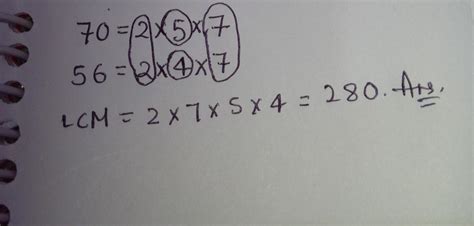 70 = 2 × 5 × 7
56 = 2 × 4 × 7
LCM = 2 × 7 × 5 × 4 = 280. Ans.